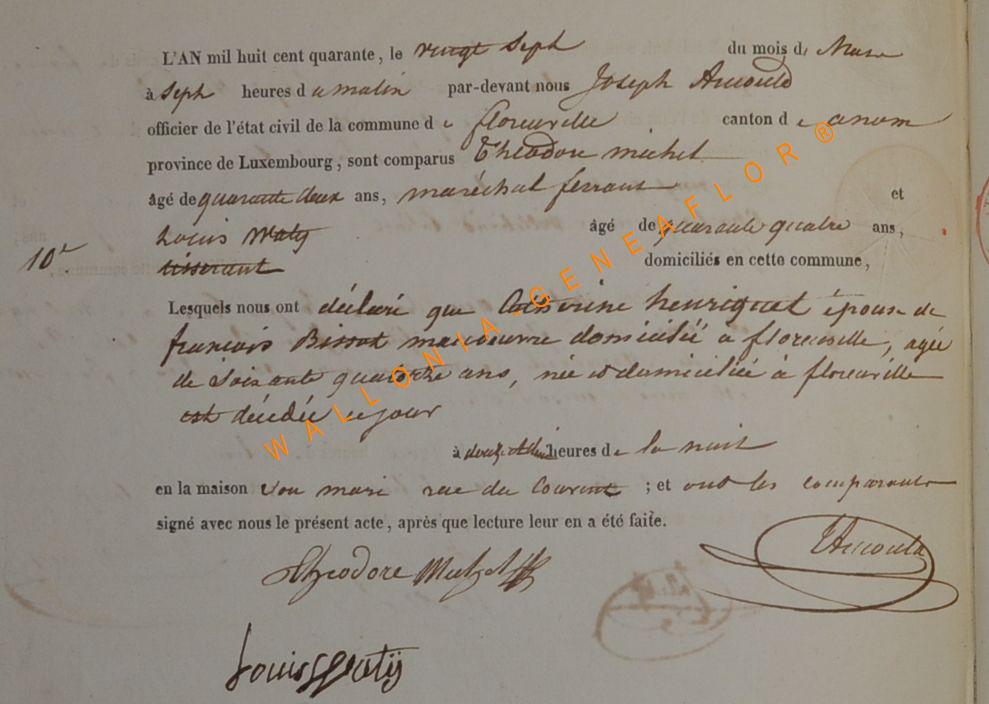 L'AN mil huit cent quarante, le vingt Sept du mois de Mars
à Sept heures du matin par-devant nous Joseph Arnould
officier de l'état civil de la commune de florenville canton de
province de Luxembourg, sont comparus Théodore michel
âgé de quarante deux ans, maréchal ferrant et
Louis Waty âgé de quarante quatre ans,
10e
tisserant domiciliés en cette commune,
Lesquels nous ont déclaré que Catherine henriquet épouse de
françois Bissot manoeuvre domicilié à florenville, agée
de Soixante quatorze ans, née et domiciliée à florenville
est décédée ce jour
à douze et demie heures de la nuit
en la maison son mari rue du Courent ; et ont les comparants
signé avec nous le présent acte, après que lecture leur en a été faite.
JArnould
Theodore Michel
Louis Watÿ
WALLONIA-GENEAFLOR ®